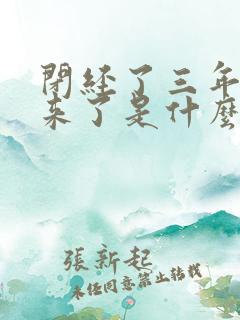 閉經了三年
來了是什麼
張新起
未经同意禁止转载